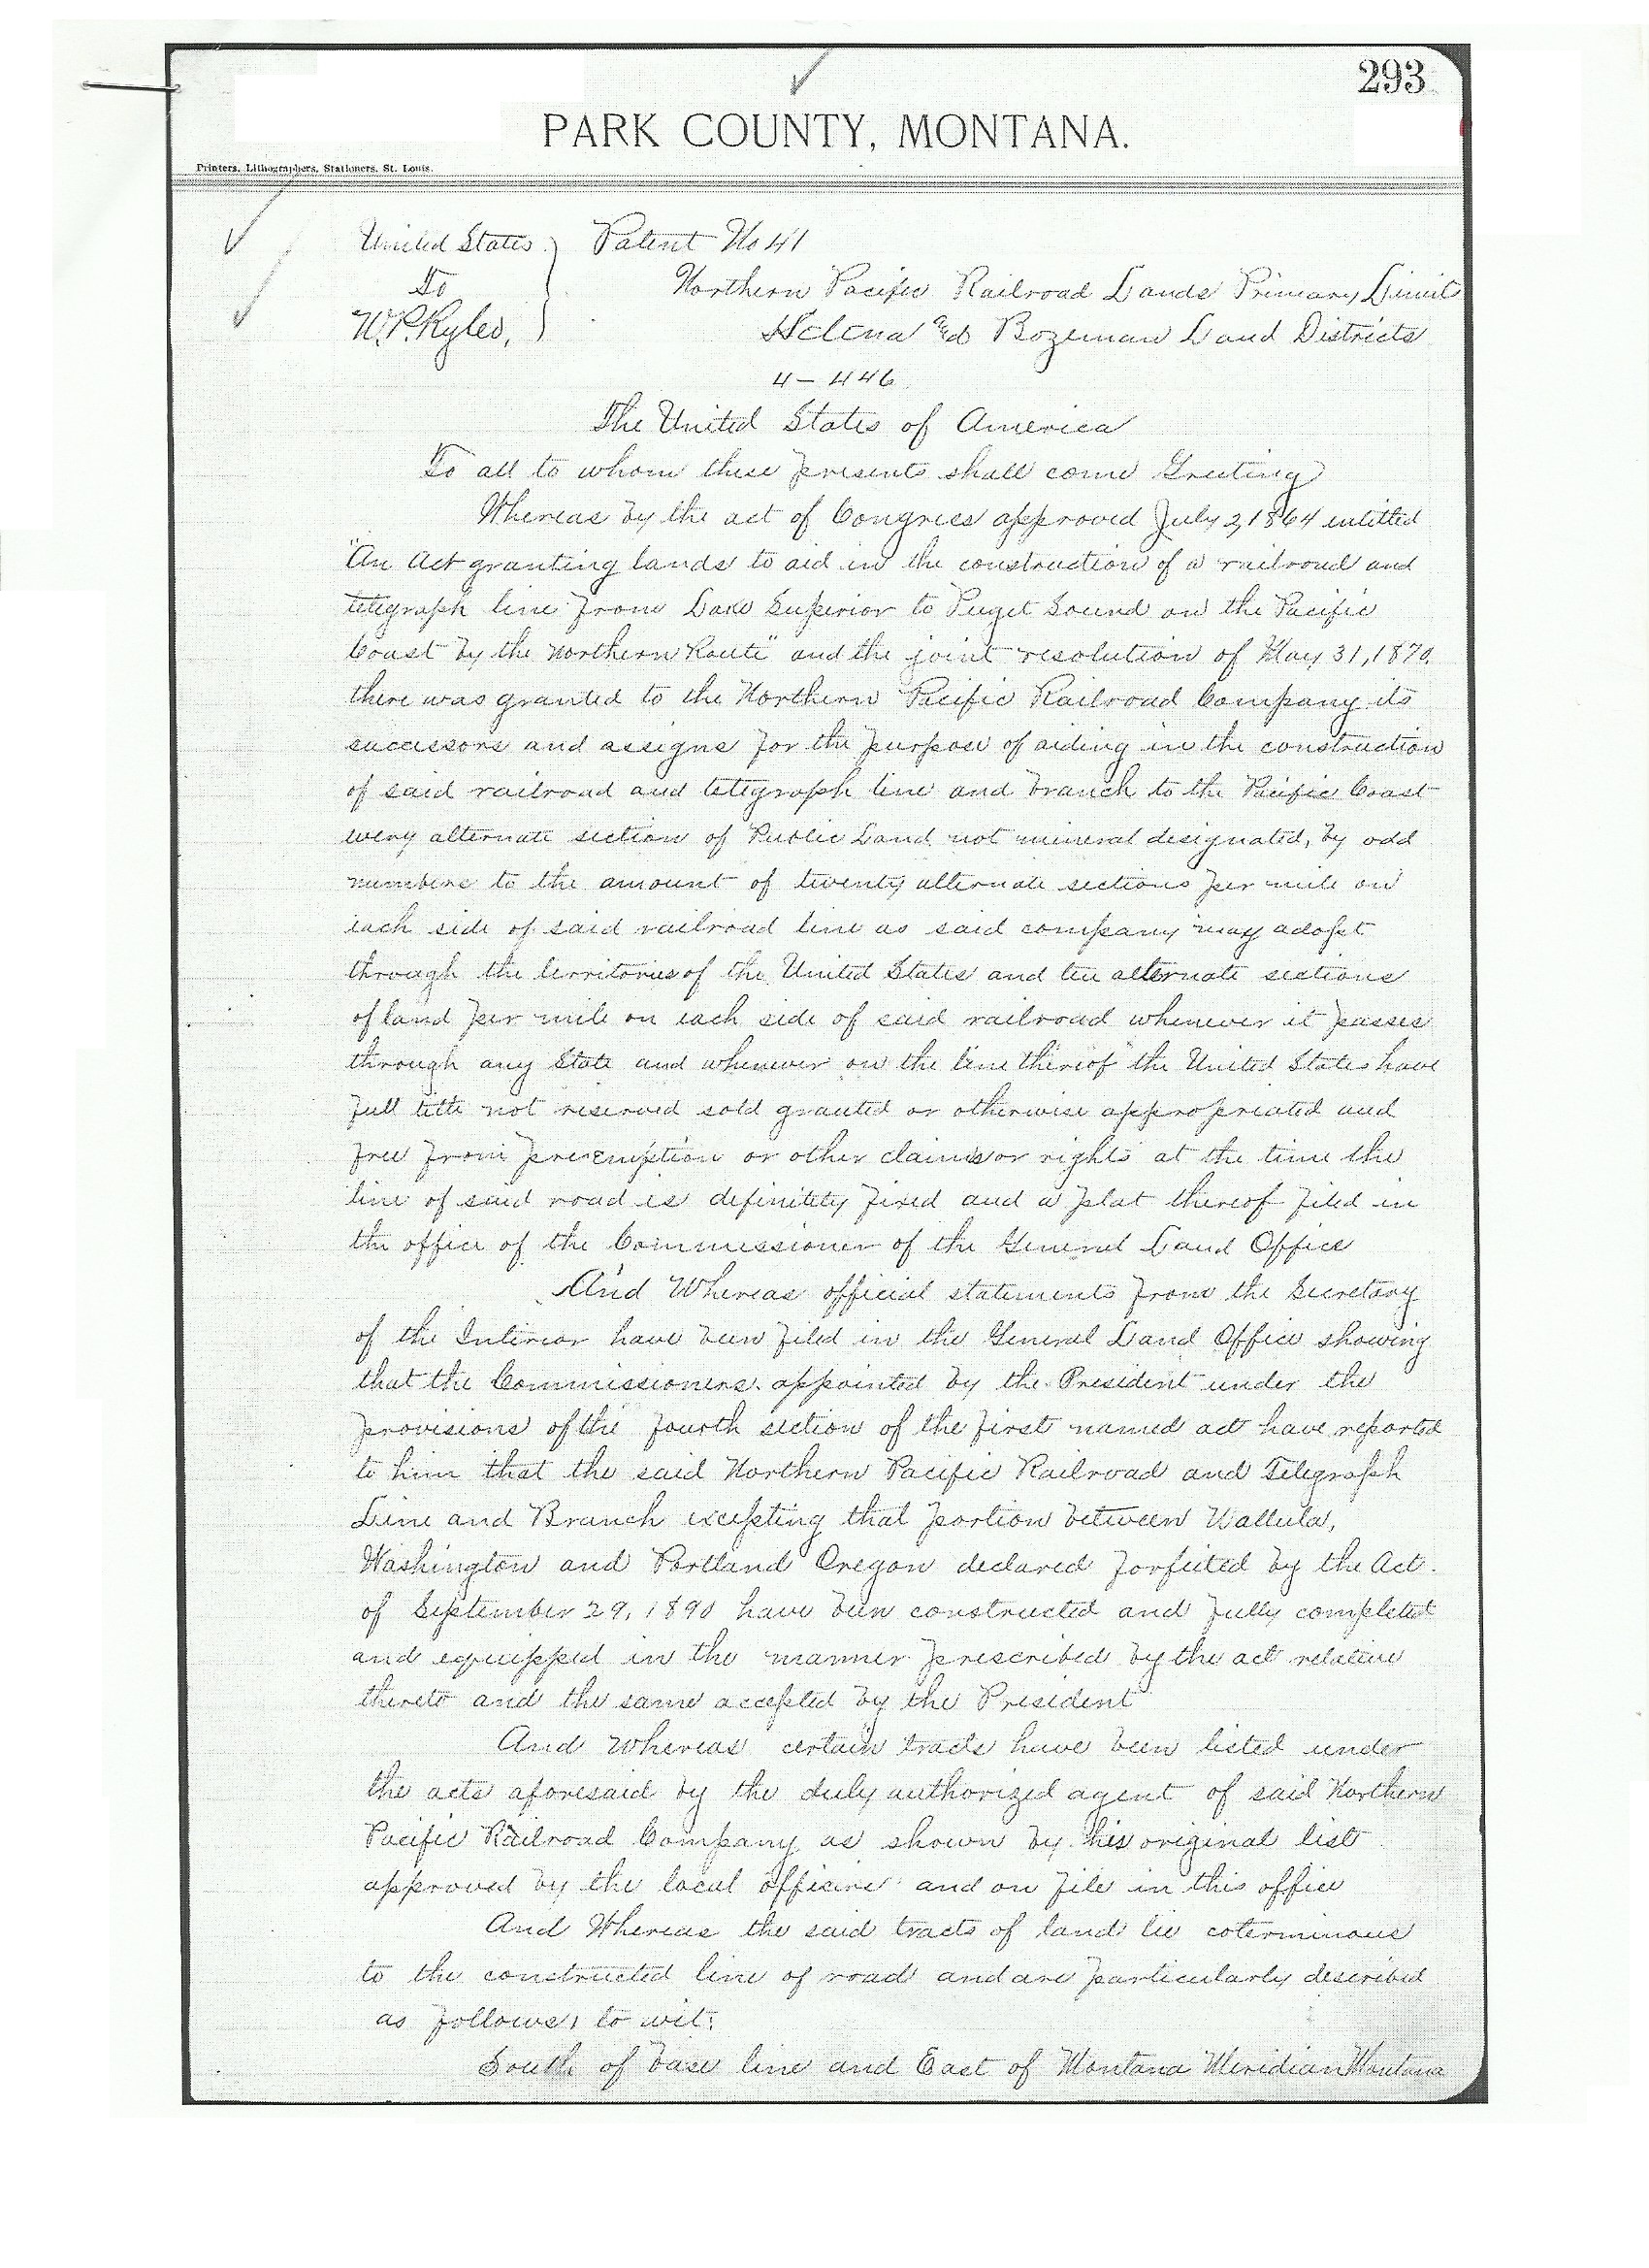 293
PARK COUNTY, MONTANA.
Printers, Lithographers, Stationers, St. Louis.
United States } Patent No 41
To Northern Pacific Railroad Lands Primary Limits
W.P. Ryles, Helena and Bozeman Land Districts
4-446
The United States of America
To all to whom these presents shall come Greeting
Whereas by the act of Congress approved July 2, 1864 entitled
"An Act granting lands to aid in the construction of a railroad and
telegraph line from Lake Superior to Puget Sound on the Pacific
Coast by the northern Route" and the joint resolution of May 31, 1870,
there was granted to the Northern Pacific Railroad Company its
successors and assigns for the purpose of aiding in the construction
of said railroad and telegraph line and branch to the Pacific Coast
every alternate section of Public Land not mineral designated, by odd
numbers to the amount of twenty alternate sections per mile on
each side of said railroad line as said company may adopt
through the territories of the United States and ten alternate sections
of land per mile on each side of said railroad whenever it passes
through any State and whenever on the line thereof the United States have
full title not reserved sold granted or otherwise appropriated and
free from preemption or other claims or rights at the time the
line of said road is definitely fixed and a plat thereof filed in
the office of the Commissioner of the General Land Office
And Whereas official statements from the Secretary
of the Interior have been filed in the General Land Office showing
that the Commissioners appointed by the President under the
provisions of the fourth section of the first named act have reported
to him that the said Northern Pacific Railroad and Telegraph
Line and Branch excepting that portion between Wallula,
Washington and Portland Oregon declared forfeited by the Act
of September 29, 1890 have been constructed and fully completed
and equipped in the manner prescribed by the act relative
thereto and the same accepted by the President
And Whereas certain tracts have been listed under
the acts aforesaid by the duly authorized agent of said Northern
Pacific Railroad Company as shown by his original list
approved by the local officers and on file in this office
And Whereas the said tracts of land lie coterminous
to the constructed line of road and are particularly described
as follows, to wit:
South of base line and East of Montana Meridian Montana